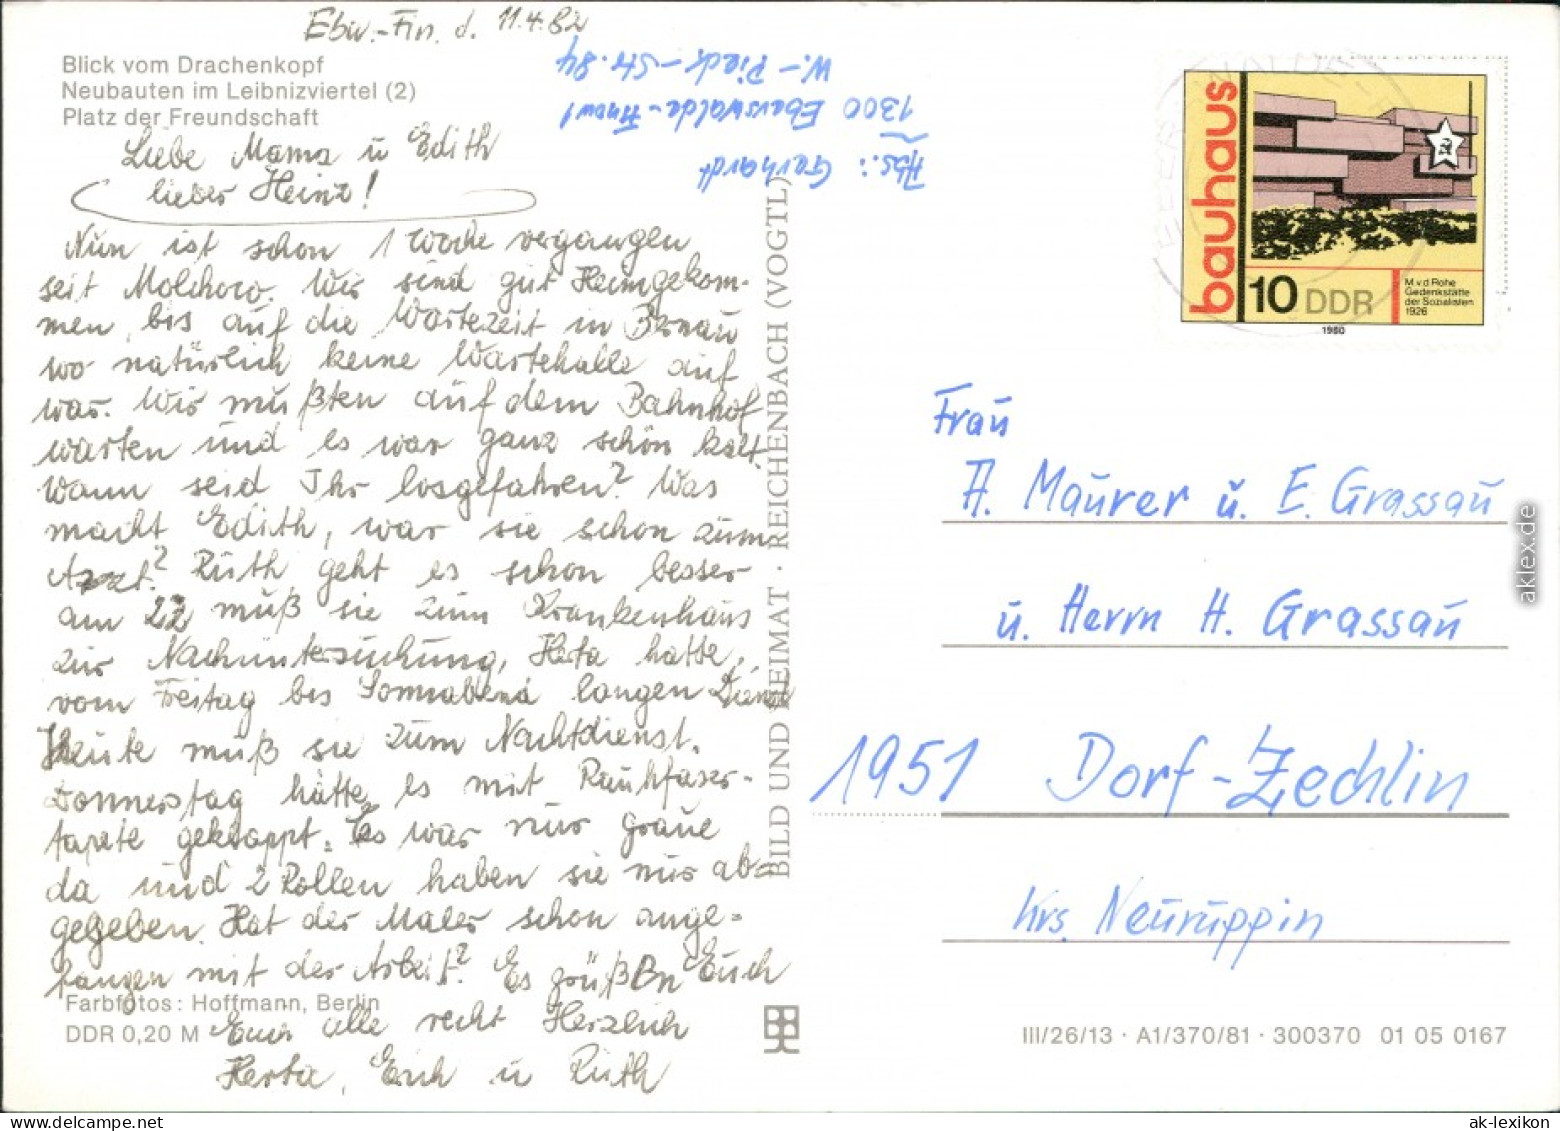 Ebw.-Fin. d. 11.4.82
Blick vom Drachenkopf
Neubauten im Leibnizviertel (2)
Platz der Freundschaft
Liebe Mama u Edith
lieber Heinz!
Nun ist schon 1 Woche vergangen
seit Molchow. Wir sind gut Heimgekom-
men, bis auf die Wartezeit in Bernau
wo natürlich keine Wartehalle auf
war. Wir mußten auf dem Bahnhof
warten und es war ganz schön kalt.
Wann seid Ihr losgefahren? Was
macht Edith, war sie schon zum
Arzt? Ruth geht es schon besser
am 22 muß sie zum Krankenhaus
zur Nachuntersuchung, Herta hatte
vom Freitag bis Sonnabend langen Dienst
Heute muß sie zum Nachtdienst.
Donnerstag hätte es mit Rauhfaser-
tapete geklappt. Es war nur graue
da und 2 Rollen haben sie nur ab=
gegeben. Hat der Maler schon ange=
fangen mit der Arbeit? Es grüßen Euch
Farbfotos: Hoffmann, Berlin
DDR 0,20 M
Euch alle recht Herzlich
Herta, Erich u Ruth
BILD UND HEIMAT · REICHENBACH (VOGTL)
Abs.: Gerhardt
1300 Eberswalde-Finow 1
W.-Pieck-Str. 84
bauhaus
M.v.d Rohe
Gedenkstätte
der Sozialisten
1926
10 DDR
1980
Frau
A. Maurer u. E. Grassau
u. Herrn H. Grassau
1951 Dorf-Zechlin
Krs. Neuruppin
III/26/13 · A1/370/81 · 300370 01 05 0167
aklex.de
ak-lexikon